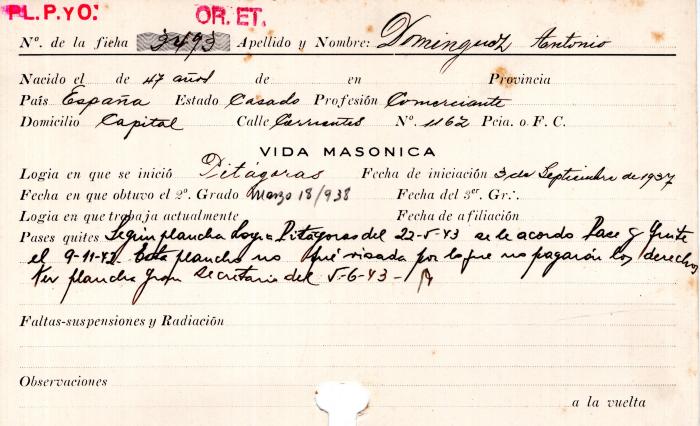 PL.P.YO: OR. ET.
Nº. de la ficha 3493 Apellido y Nombre: Dominguez Antonio
Nacido el de 47 años de en Provincia
País España Estado Casado Profesión Comerciante
Domicilio Capital Calle Corrientes Nº. 1162 Pcia. o F. C.
VIDA MASONICA
Logia en que se inició Pitágoras Fecha de iniciación 3 de Septiembre de 1937
Fecha en que obtuvo el 2º. Grado Marzo 18/938 Fecha del 3er. Gr.
Logia en que trabaja actualmente Fecha de afiliación
Pases quites Según plancha Logia Pitágoras del 22-5-43 se le acordo Pase y Quite
el 9-11-42. Esta plancha no fué visada por lo que no pagarán los derechos
Ver plancha Gran Secretaria del 5-6-43 -
Faltas-suspensiones y Radiación
Observaciones
a la vuelta